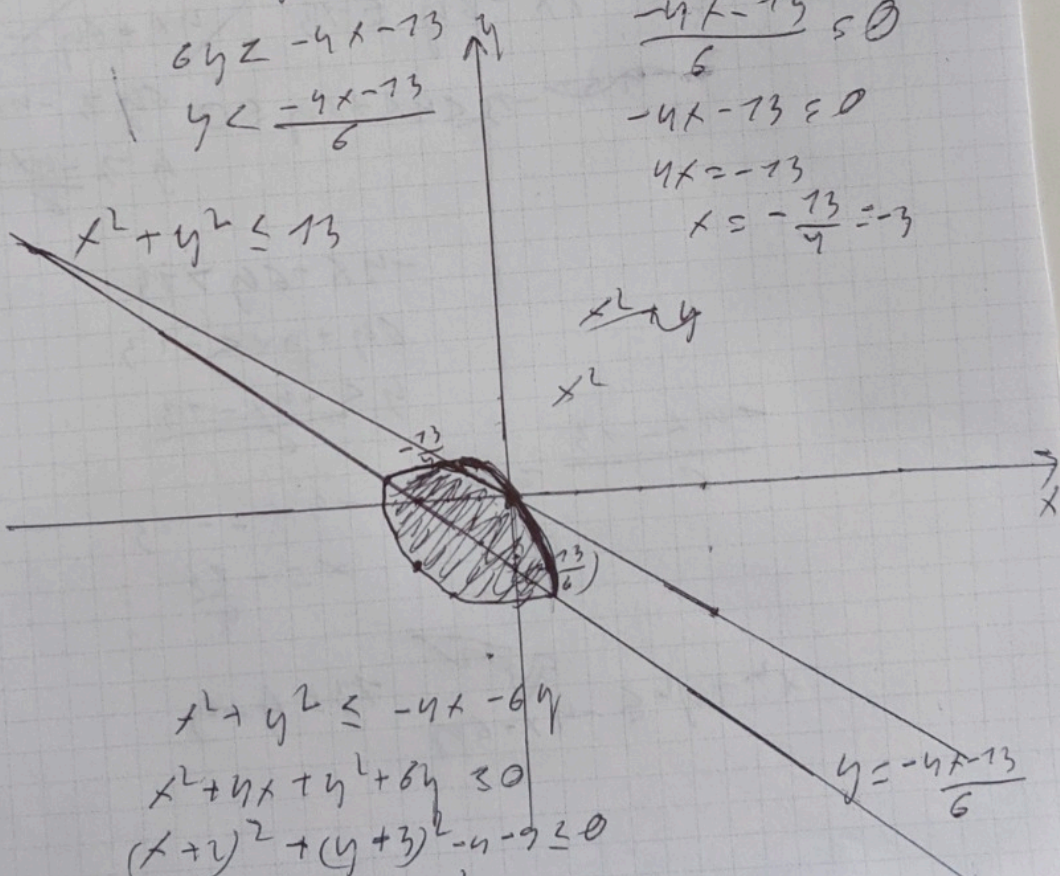 6y < -4x-13
y < \frac{-4x-13}{6}
y
\frac{-4x-13}{6} = 0
-4x-13 = 0
4x = -13
x = -\frac{13}{4} = -3
x² + y² ≤ 13
x² + y
x²
-\frac{13}{4}
x
\frac{13}{6})
x² + y² ≤ -4x - 6y
x² + 4x + y² + 6y ≤ 0
(x+2)² + (y+3)² - 4 - 9 ≤ 0
y = \frac{-4x-13}{6}